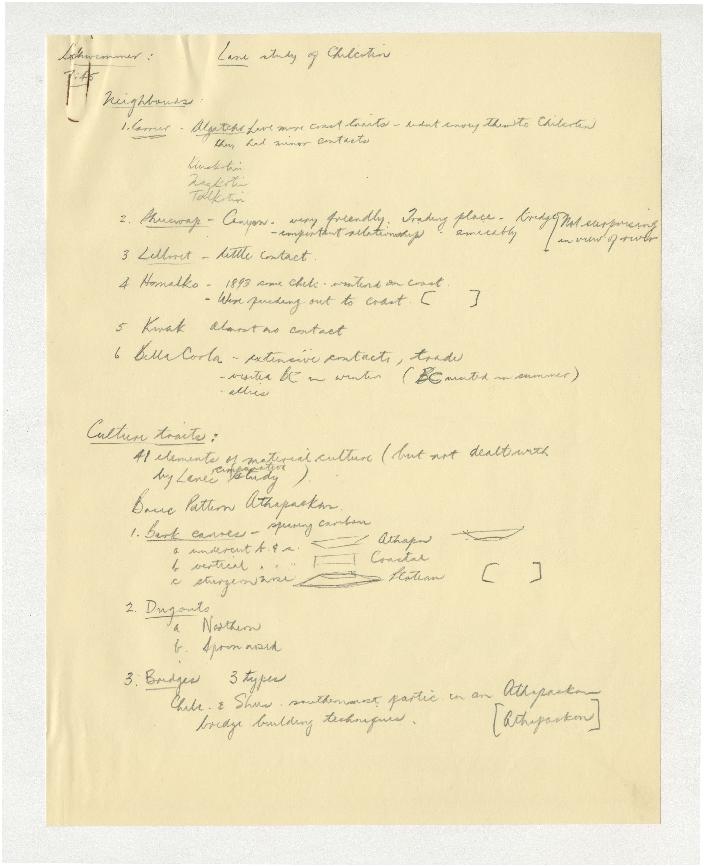 Schwemmer: Lane study of Chilcotin
Neighbours:
1. Carrier - Algatcho have more coast traits - didn't convey them to Chilcotin
they had minor contacts
Kluskotin
Nazkotin
Tautin
2. Shuswap - Canyon - very friendly. Trading place - bridge [Not surprising
- important relationship - amicably in view of river
3 Lillooet - little contact.
4 Homalko - 1893 some Chilc. wintered on coast.
- Were pushing out to coast. [ ]
5 Kwak almost no contact
6 Bella Coola - extensive contacts, trade
- visited BC in winter (BC visited in summer)
- allies
Culture traits:
41 elements of material culture (but not dealt with
by Lane's comparative study).
Basic Pattern Athapaskan.
1. Bark canoes - spearing caribou
a undercut b. & s. Athapa
b vertical " " Coastal
c sturgeon nose Plateau [ ]
2. Dugouts
a Northern
b. Spoon nosed
3. Bridges 3 types
Chilc. & Shus. southernmost partic. in an Athapaskan
bridge building techniques. [Athapaskan]